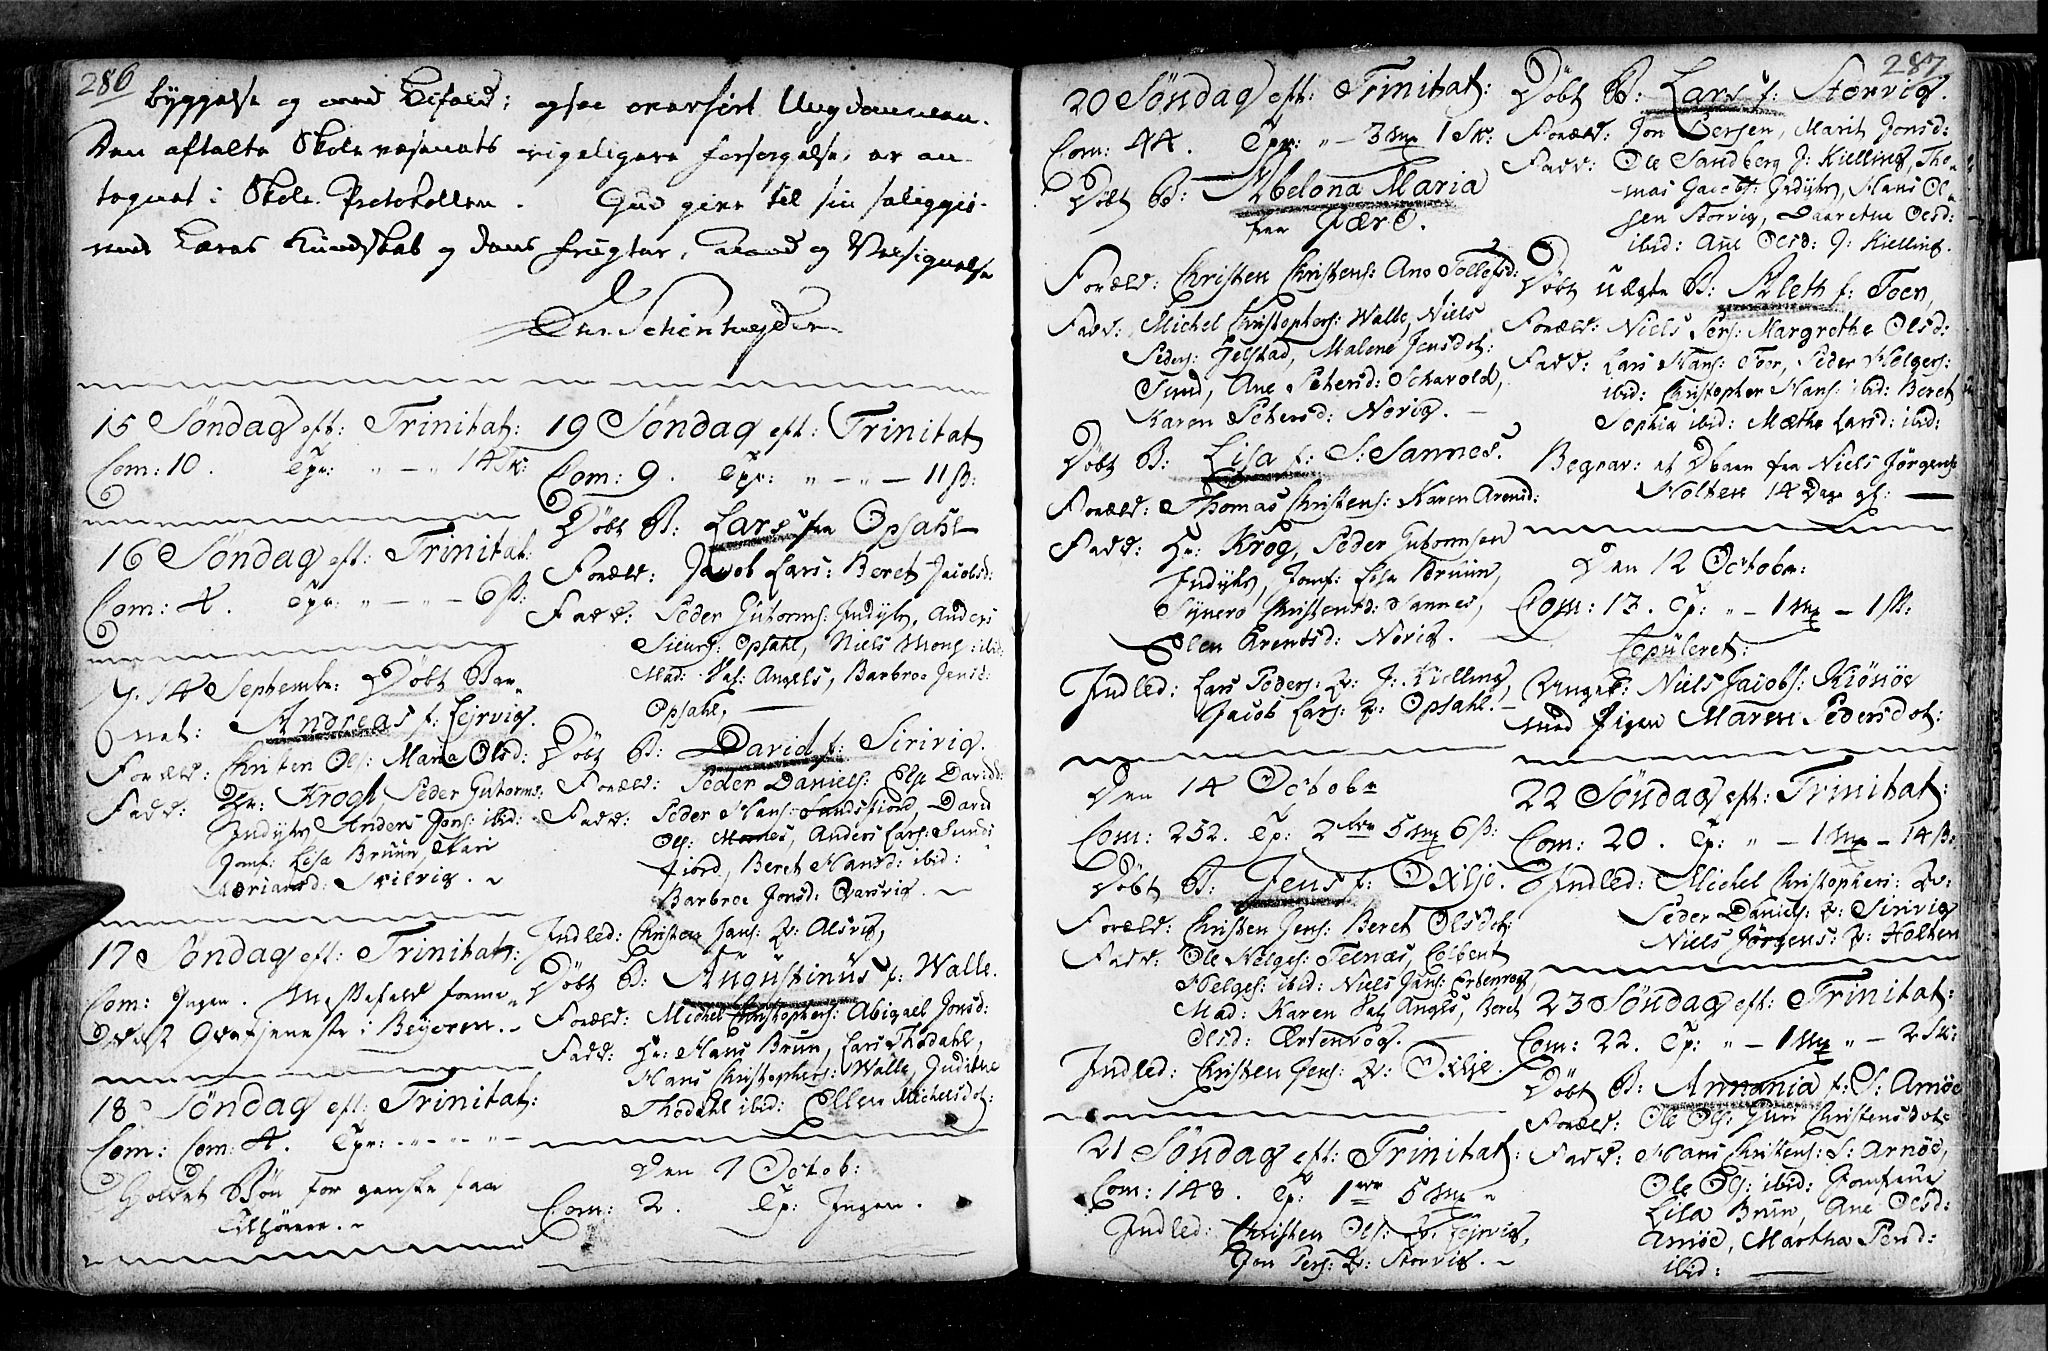 286
byggelse og med Bifald; ogsaa overhört Ungdommen.
Den aftalte Skole væsenets rigeligere forsorgelse, er an-
tegnet i Skole Protokollen. Gud give til sin saliggiö-
rende Læres Kundskab og dens frugter, Naade og Velsignelse
15 Söndag eft: Trinitat:
Com: 10. Tpr: " - " 14 Sk:
16 Söndag eft: Trinitat:
Com: 4. Tpr: " - " - 6 ß:
14 Septembr: Döbt Bar-
net: Andreas f: Lejrvig.
Foræld: Christen Ols: Maria Olsd:
Fadd: Hr: Krogh, Peder Guttorms:
Indyhr, Anders Jons: ibid:
Jomf: Lisa Bruun, Kari
Adriansd: Skilvig. -
17 Söndag eft: Trinitat:
Com: Ingen. Messefald forme-
delst Gudstjeneste i Bejeren. -
18 Söndag eft: Trinitat:
Com: Com: 4. Tpr: " - " - " -
Holdet Bön for ganske faa
Tilhörere. -
19 Söndag eft: Trinitat
Com: 9. Tpr: " - " - 11 ß:
Döbt B: Lars fra Opsahl
Foræld: Jacob Lars: Beret Jacobsd:
Fadd: Peder Guttorms: Indyhr, Anders
Siurs: Opsahl, Niels Mons: ibid:
Mad: Sal: Angels, Barbroe Jensd:
Opsahl,
Döbt B: David f: Sirivig.
Foræld: Peder Daniels: Else Davidd:
Fadd: Peder Hans: Sandsfiord, David
Ols: Mornes, Anders Lars: Sunds
fiord, Beret Hansd: ibid:
Barbroe Jonsd: Qvarsvig. -
Indled: Christen Jans: Qv: Alsvig,
Döbt B: Augustinus f: Walle.
Foræld: Michel Christophers: Abigael Jonsd:
Fadd: Hr: Hans Brun, Lars Thodahl,
Hans Christophers: Walle, Judithe
Thodahl ibid: Ellen Michelsdot:
Den 7 Octob:
Com: 2. Tp: Ingen.
287
20 Söndag eft: Trinitat:
Com: 44. Tpr: " - 3 mk 1 Sk:
Döbt B: Abelona Maria
fra Færö.
Foræld: Christen Christens: Ane Tollefsd:
Fadd: Michel Christophers: Walle, Niels
Peders: Jelstad, Malene Jensdot:
Sund, Ane Petersd: Scharvold,
Karen Petersd: Norvig. -
Döbt B: Lisa f: S: Sannes.
Foræld: Thomas Christens: Karen Arensd:
Fadd: Hr: Krog, Peder Gutormsen
Indyhr, Jomf: Lisa Bruun,
Synero Christensd: Sannes,
Elen Arentsd: Norvig.
Indled: Lars Peders: Qv: J: Kielling,
Jacob Lars: Qv: Opsahl. -
Den 14 Octobr
Com: 252. Tp: 2 5 mk 6 ß:
Döbt B: Jens f: Oxlje.
Foræld: Christen Jens: Beret Olsdot:
Fadd: Ole Helges: Telnæs, Colbent
Helges: ibid: Niels Jens: Ertenvog,
Mad: Karen Sal: Angels, Beret
Olsd: Ertenvog.
Indled: Christen Jens: Qv: Oxlje.
21 Söndag eft: Trinitat:
Com: 148. Tp: 1 5 mk "
Indled: Christen Ols: Qv: Lejrvig,
Jon Pers: Qv: Storvig. -
Döbt B: Lars f: Storvig.
Foræld: Jon Persen, Marit Jonsd:
Fadd: Ole Sandberg J: Kielling, Tho-
mas Jacobs: Indyhr, Hans Ol-
sen Storvig, Daarethe Olsd:
ibid: Ane Olsd: J: Kielling.
Döbt uægte B: Aleth f: Toen,
Foræld: Niels Pers: Margrethe Olsd:
Fadd: Lars Hans: Toen, Peder Holgers:
ibid: Christopher Hans: ibid: Beret
Sophia ibid: Mæthe Larsd: ibid:
Begrav: et Dbarn fra Niels Jörgens
Holten 14 Dage gl:
Den 12 Octobr:
Com: 13. Tp: " - 1 mk - 1 ß:
Copuleret:
Ungek: Niels Jacobs: Kiönöe
med Pigen Maren Pedersdot:
22 Söndag eft: Trinitat:
Com: 20. Tp: " - 1 mk - 14 ß:
Indled: Michel Christophers: Qv:
Peder Daniels: Qv: Sirivig
Niels Jörgens: Qv: Holten
23 Söndag eft: Trinitat:
Com: 22. Tp: " - 1 mk " - 2 Sk:
Döbt B: Annania f: S: Arnöe
Foræld: Ole Ols: Guri Christensdot:
Fadd: Hans Christens: S: Arnöe,
Ole Ols: ibid: Jomfrue
Lisa Bruun, Ane Olsd:
Arnöe, Martha Persd:
ibid: